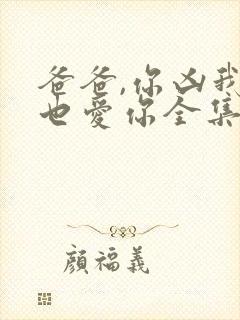 爸爸,你凶我
也爱你全集
顏福義